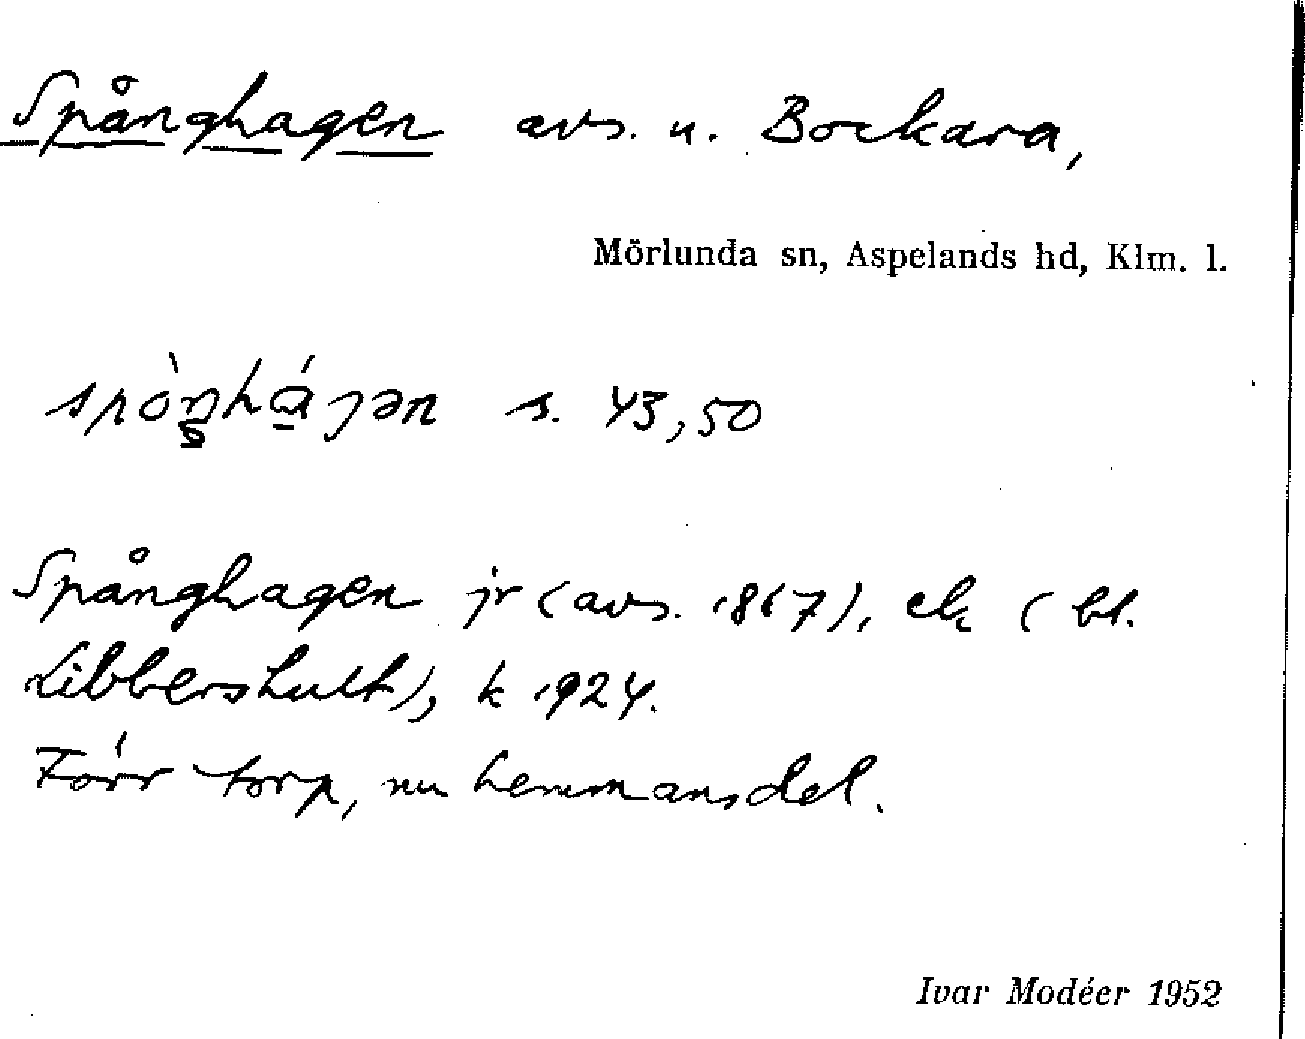 Spånghagen avs. u. Bockara,
Mörlunda sn, Aspelands hd, Klm. l.
s. 43,50
Spånghagen jr (avs. 1867), ek (bl.
Libbershult), k 1924.
Förr torp, nu hemmansdel.
Ivar Modéer 1952